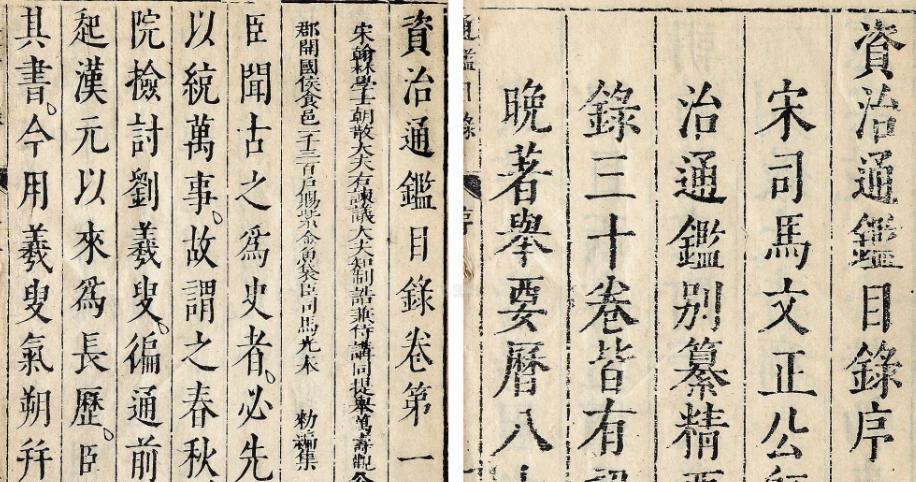 資治通鑑目錄序
宋司馬文正公
治通鑑別纂精
錄三十卷皆有
晚著舉要曆八
通鑑目錄 序
資治通鑑目錄卷第一
宋翰林學士朝散大夫右諫議大夫知制誥兼侍講同提舉萬壽觀公
郡開國侯食邑一千三百戶賜紫金魚袋臣司馬光奉 勑編集
臣聞古之爲史者。必先
以統萬事。故謂之春秋
院撿討劉羲叟。徧通前
起漢元以來爲長歷。臣
其書。今用羲叟氣朔并